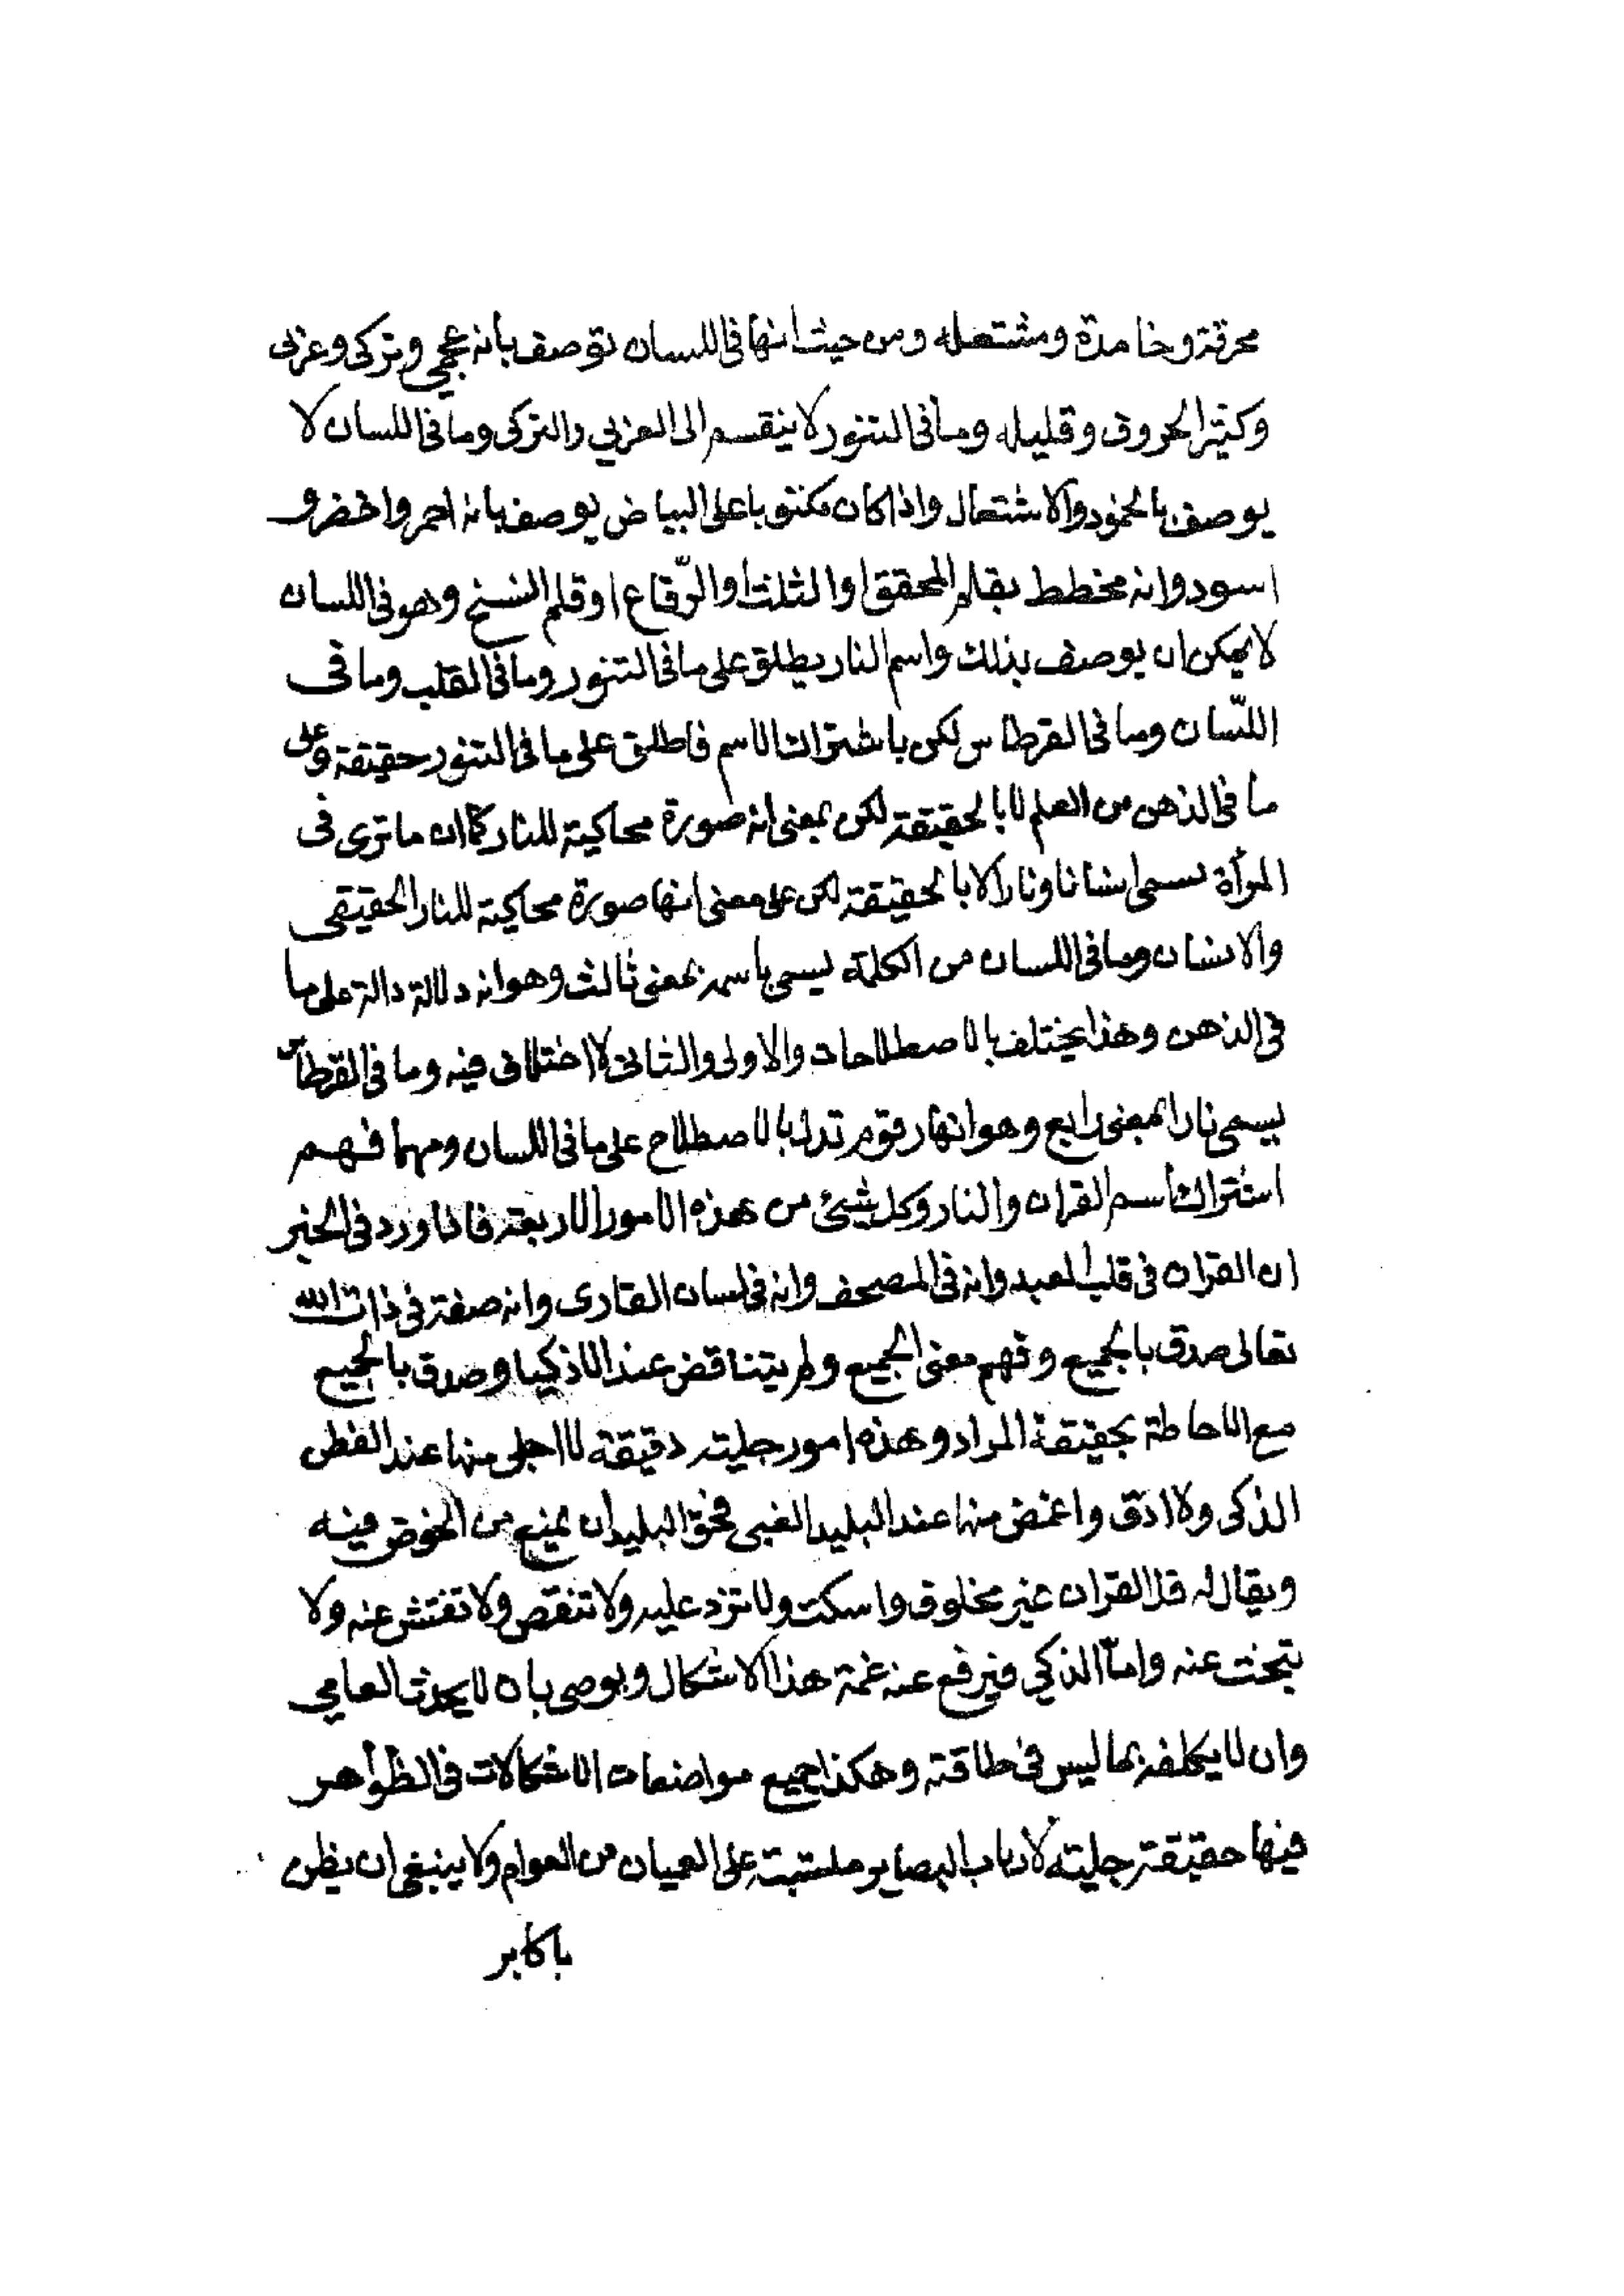 محرقة وخامدة ومشتعله ومن حيث انها فى اللسان توصف بانه عجمي وتركى وعربى
وكثير الحروف وقليله وما فى التنور لا ينقسم الى العربي والتركى وما فى اللسان لا
يوصف بالخمود والاشتعال واذا كان مكتوبا على البياض يوصف بانه احمر واخضر و
اسود وانه مخطط بقلم المحقق او الثلث او الرّقاع او قلم النسخ وهو فى اللسان
لا يمكن ان يوصف بذلك واسم النار يطلق على ما فى التنور وما فى القلب وما فى
اللّسان وما فى القرطاس لكن باشتراك الاسم فاطلق على ما فى التنور حقيقة وعلى
ما فى الذهن من العلم لا بالحقيقة لكن بمعنى انه صورة محاكية للنار كما ان ما ترى فى
المرآة يسمى انسانا ونارا لا بالحقيقة لكن على معنى انها صورة محاكية للنار الحقيقى
والانسان وما فى اللسان من الكلمة يسمى باسمه بمعنى ثالث وهو انه دلالة دالة على ما
فى الذهن وهذا يختلف بالاصطلاحات والاولى والثانى لا اختلاف فيه وما فى القرطاس
يسمى نارا بمعنى رابع وهو انها رقوم تدل بالاصطلاح على ما فى اللسان ومهما فهم
اشتراك اسم القران والنار وكل شيئ من هذه الامور الاربعة فاذا ورد فى الخبر
ان القران فى قلب العبد وانه فى المصحف وانه فى لسان القارى وانه صفة فى ذات الله
تعالى صدق بالجميع وفهم معنى الجميع ولم يتناقض عند الاذكيا وصدق بالجميع
مع الاحاطة بحقيقة المراد وهذه امور جلية دقيقة لا اجلى منها عند الفطن
الذكى ولا ادق واغمض منها عند البليد الغبى فحق البليد ان يمنع من الخوض فيه
ويقال له قل القران غير مخلوق واسكت ولا تزد عليه ولا تنقص ولا تفتش عنه ولا
تبحث عنه وامّا الذكي فيرفع عنه غمة هذا الاشكال ويوصى بان لا يحدث العامي
وان لا يكلفه بما ليس فى طاقته وهكذا جميع مواضعات الاشكالات فى الظواهر
فيها حقيقة جلية لارباب البصاير ملتبسة على العميان من العوام ولا ينبغى ان يظن
باكابر